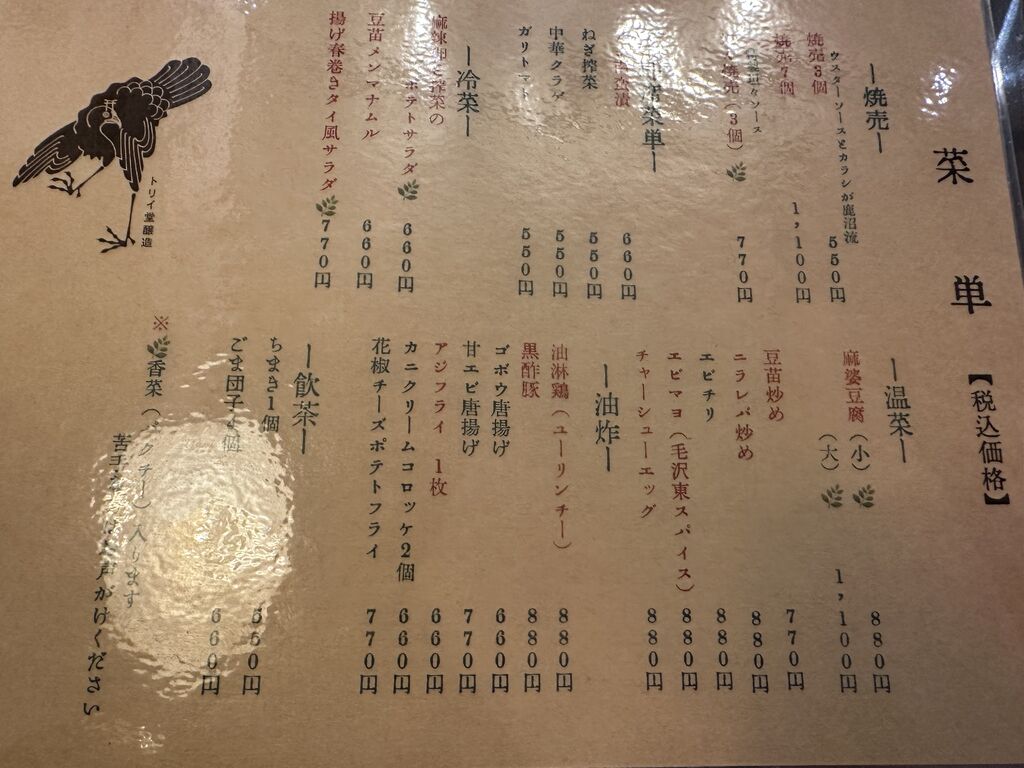 菜単
【税込価格】
―焼売―
ウスターソースとカラシが鹿沼流
焼売3個 550円
焼売7個 1,100円
ソース
焼売(3個) 770円
菜単―
漬 660円
ねぎ搾菜 550円
中華クラゲ 550円
ガリトマト 550円
―冷菜―
搾菜の
ポテトサラダ 660円
豆苗メンマナムル 660円
揚げ春巻きタイ風サラダ 770円
トリイ堂醸造
―温菜―
麻婆豆腐(小) 880円
(大) 1,100円
豆苗炒め 770円
ニラレバ炒め 880円
エビチリ 880円
エビマヨ(毛沢東スパイス) 880円
チャーシューエッグ 880円
―油炸―
油淋鶏(ユーリンチー) 880円
黒酢豚 880円
ゴボウ唐揚げ 660円
甘エビ唐揚げ 770円
アジフライ 1枚 660円
カニクリームコロッケ2個 660円
花椒チーズポテトフライ 770円
―飲茶―
ちまき1個 550円
ごま団子 個 660円
※香菜(パクチー)入ります
苦手 お声がけください